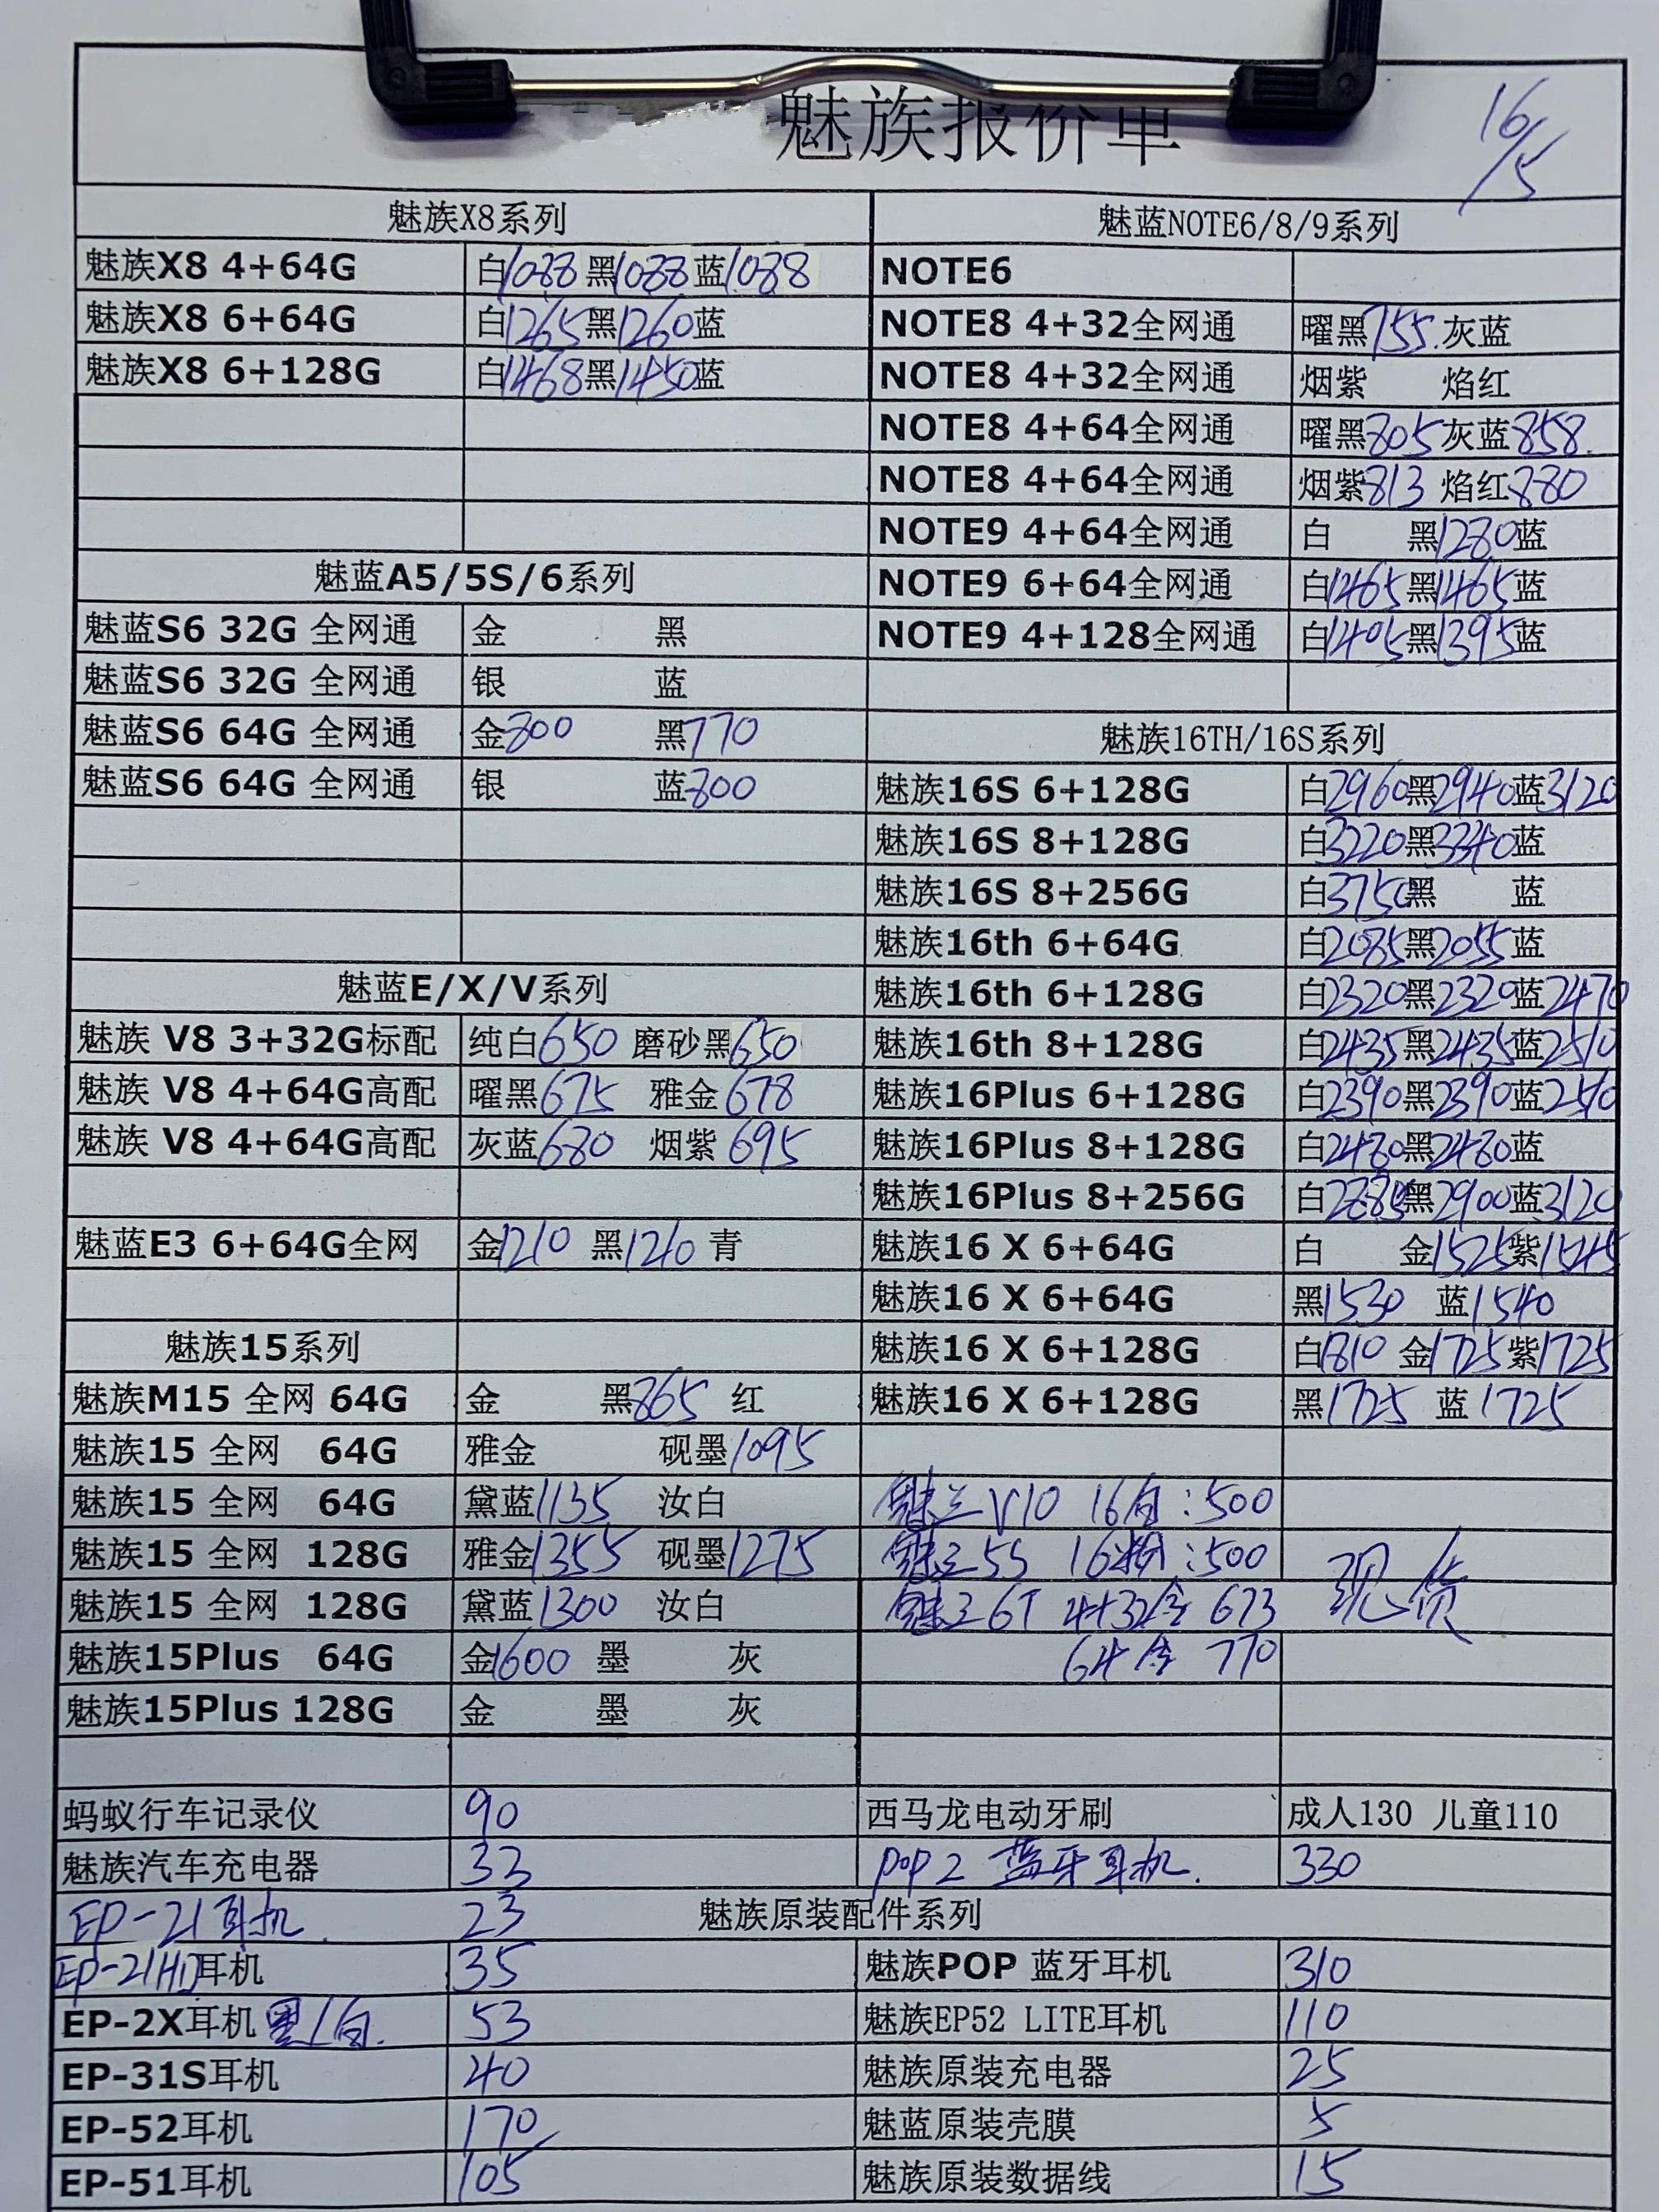 魅族报价单
16/5
魅族X8系列
魅族X8 4+64G 白1088 黑1088 蓝1088
魅族X8 6+64G 白1265 黑1260 蓝
魅族X8 6+128G 白1468 黑1450 蓝
魅蓝A5/5S/6系列
魅蓝S6 32G 全网通 金 黑
魅蓝S6 32G 全网通 银 蓝
魅蓝S6 64G 全网通 金800 黑770
魅蓝S6 64G 全网通 银 蓝800
魅蓝E/X/V系列
魅族 V8 3+32G标配 纯白650 磨砂黑650
魅族 V8 4+64G高配 曜黑675 雅金678
魅族 V8 4+64G高配 灰蓝680 烟紫695
魅蓝E3 6+64G全网 金1210 黑1210 青
魅族15系列
魅族M15 全网 64G 金 黑865 红
魅族15 全网 64G 雅金 砚墨1095
魅族15 全网 64G 黛蓝1135 汝白
魅族15 全网 128G 雅金1355 砚墨1275
魅族15 全网 128G 黛蓝1300 汝白
魅族15Plus 64G 金1600 墨 灰
魅族15Plus 128G 金 墨 灰
魅蓝NOTE6/8/9系列
NOTE6
NOTE8 4+32全网通 曜黑755 灰蓝
NOTE8 4+32全网通 烟紫 焰红
NOTE8 4+64全网通 曜黑805 灰蓝858
NOTE8 4+64全网通 烟紫813 焰红880
NOTE9 4+64全网通 白 黑1280 蓝
NOTE9 6+64全网通 白1465 黑1465 蓝
NOTE9 4+128全网通 白1405 黑1395 蓝
魅族16TH/16S系列
魅族16S 6+128G 白2960 黑2940 蓝3120
魅族16S 8+128G 白3220 黑3340 蓝
魅族16S 8+256G 白3750 黑 蓝
魅族16th 6+64G 白2085 黑2055 蓝
魅族16th 6+128G 白2320 黑2320 蓝2470
魅族16th 8+128G 白2435 黑2435 蓝2510
魅族16Plus 6+128G 白2390 黑2390 蓝2510
魅族16Plus 8+128G 白2480 黑2480 蓝
魅族16Plus 8+256G 白 黑2900 蓝3120
魅族16 X 6+64G 白 金1525 紫1545
魅族16 X 6+64G 黑1530 蓝1540
魅族16 X 6+128G 白1810 金1725 紫1725
魅族16 X 6+128G 黑1725 蓝1725
魅兰V10 16白:500
魅兰5S 16粉:500
魅兰6T 4+32金 673
64金 770
现货
蚂蚁行车记录仪 90 西马龙电动牙刷 成人130 儿童110
魅族汽车充电器 33 pop2 蓝牙耳机. 330
EP-21耳机 23 魅族原装配件系列
EP-21HD耳机 35 魅族POP 蓝牙耳机 310
EP-2X耳机 黑/白. 53 魅族EP52 LITE耳机 110
EP-31S耳机 40 魅族原装充电器 25
EP-52耳机 170 魅蓝原装壳膜 5
EP-51耳机 105 魅族原装数据线 15